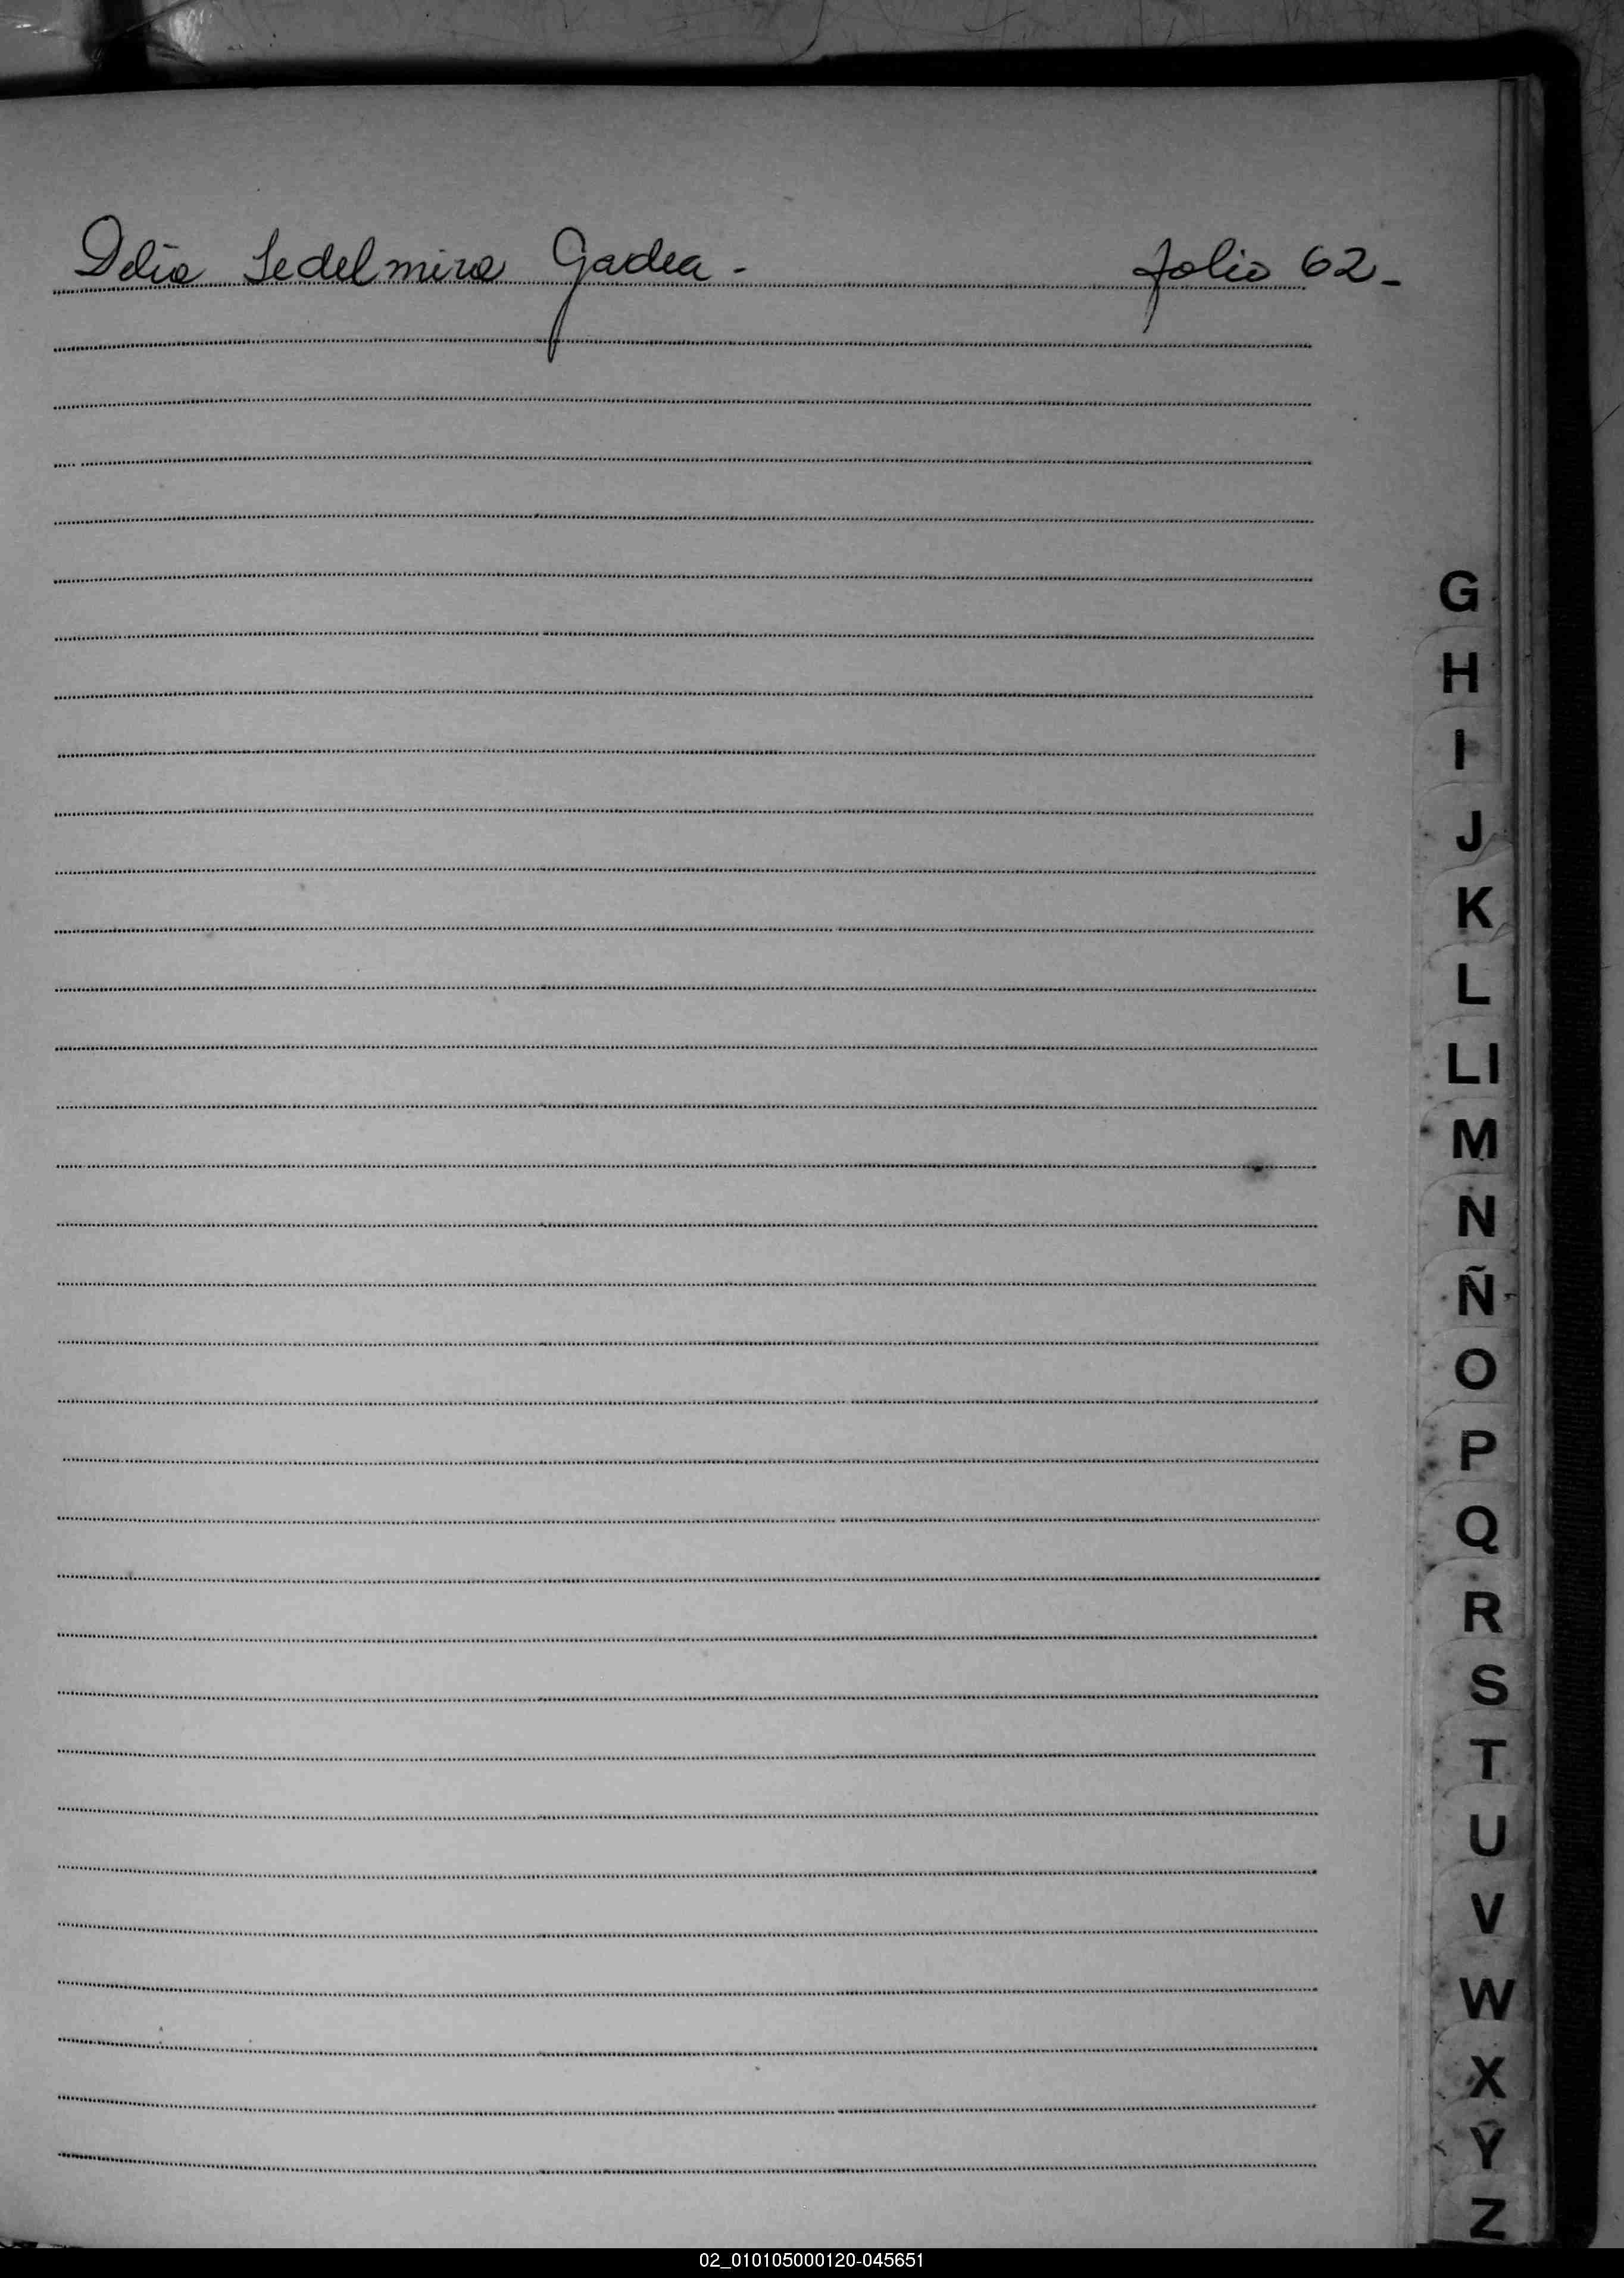 Delia Sedelmira Gadea - folio 62 -
G
H
I
J
K
L
Ll
M
N
Ñ
O
P
Q
R
S
T
U
V
W
X
Y
Z
02_010105000120-045651